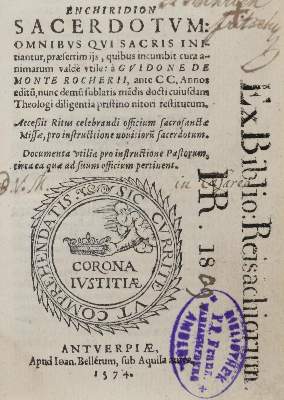 ENCHIRIDION
SACERDOTVM:
OMNIBVS QVI SACRIS INI-
tiantur, præsertim ijs, quibus incumbit cura a-
nimarum valdè vtile: à GVIDONE DE
MONTE ROCHERII, ante CC, Annos
editũ, nunc demũ sublatis mẽdis docti cuiusdam
Theologi diligentia pristino nitori restitutum.
Accessit Ritus celebrandi officium sacrosanctæ
Missæ, pro instructione nouitiorũ sacerdotum.
Documenta vtilia pro instructione Pastorum,
circa ea quæ ad suum officium pertinent.
SIC CVRRITE VT COMPREHENDATIS
CORONA
IVSTITIÆ
ANTVERPIÆ,
Apud Ioan. Bellerum, sub Aquila aurea
1574.
Ex Biblio: Reisachiorum.
IR. 18
BIBLIOTHEK
AMBERG